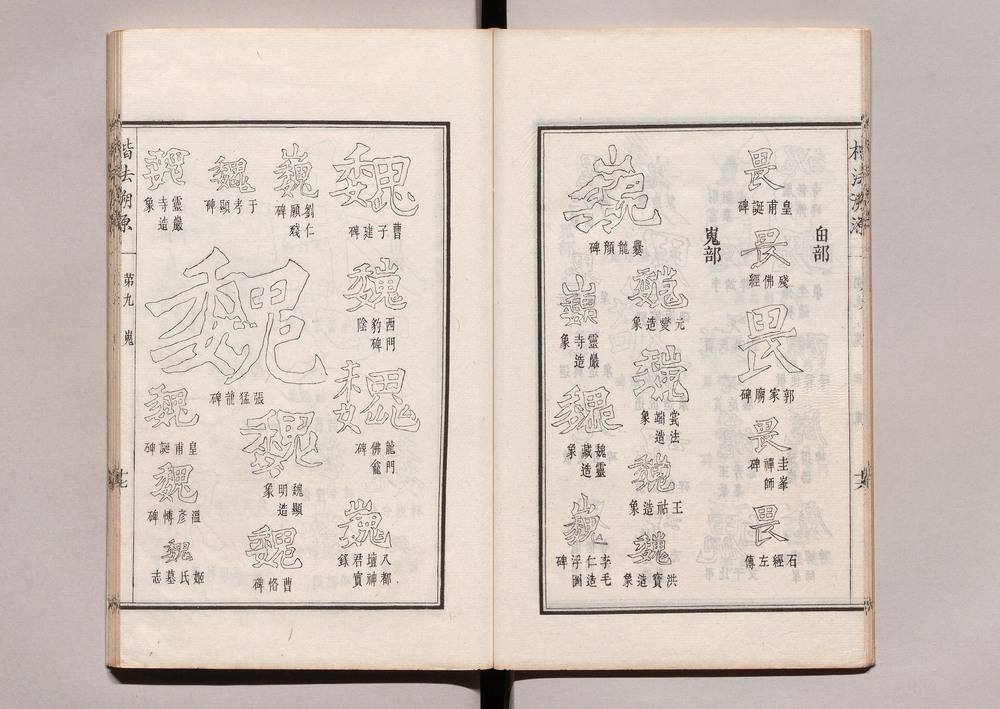 甶部
畏
皇甫誕碑
畏
殘佛經
畏
郭家廟碑
畏
圭峯禪師碑
畏
石經左傳
嵬部
巍
爨龍顏碑
魏
元燮造象
魏
法端造
魏
王祜造象
魏
洪寶造象
巍
靈巖寺造象
魏
魏靈藏造象
巍
李仁造浮圖碑
楷法溯源
第九
嵬
魏
曹子建碑
魏
西門豹碑陰
魏
龍門佛龕碑
巍
八都壇神君寶錄
巍
劉仁願殘碑
魏
于孝顯碑
魏
靈巖寺造象
魏
張猛龍碑
魏
魏顯明造象
魏
曹恪碑
魏
皇甫誕碑
魏
溫彥博碑
魏
姬氏墓志